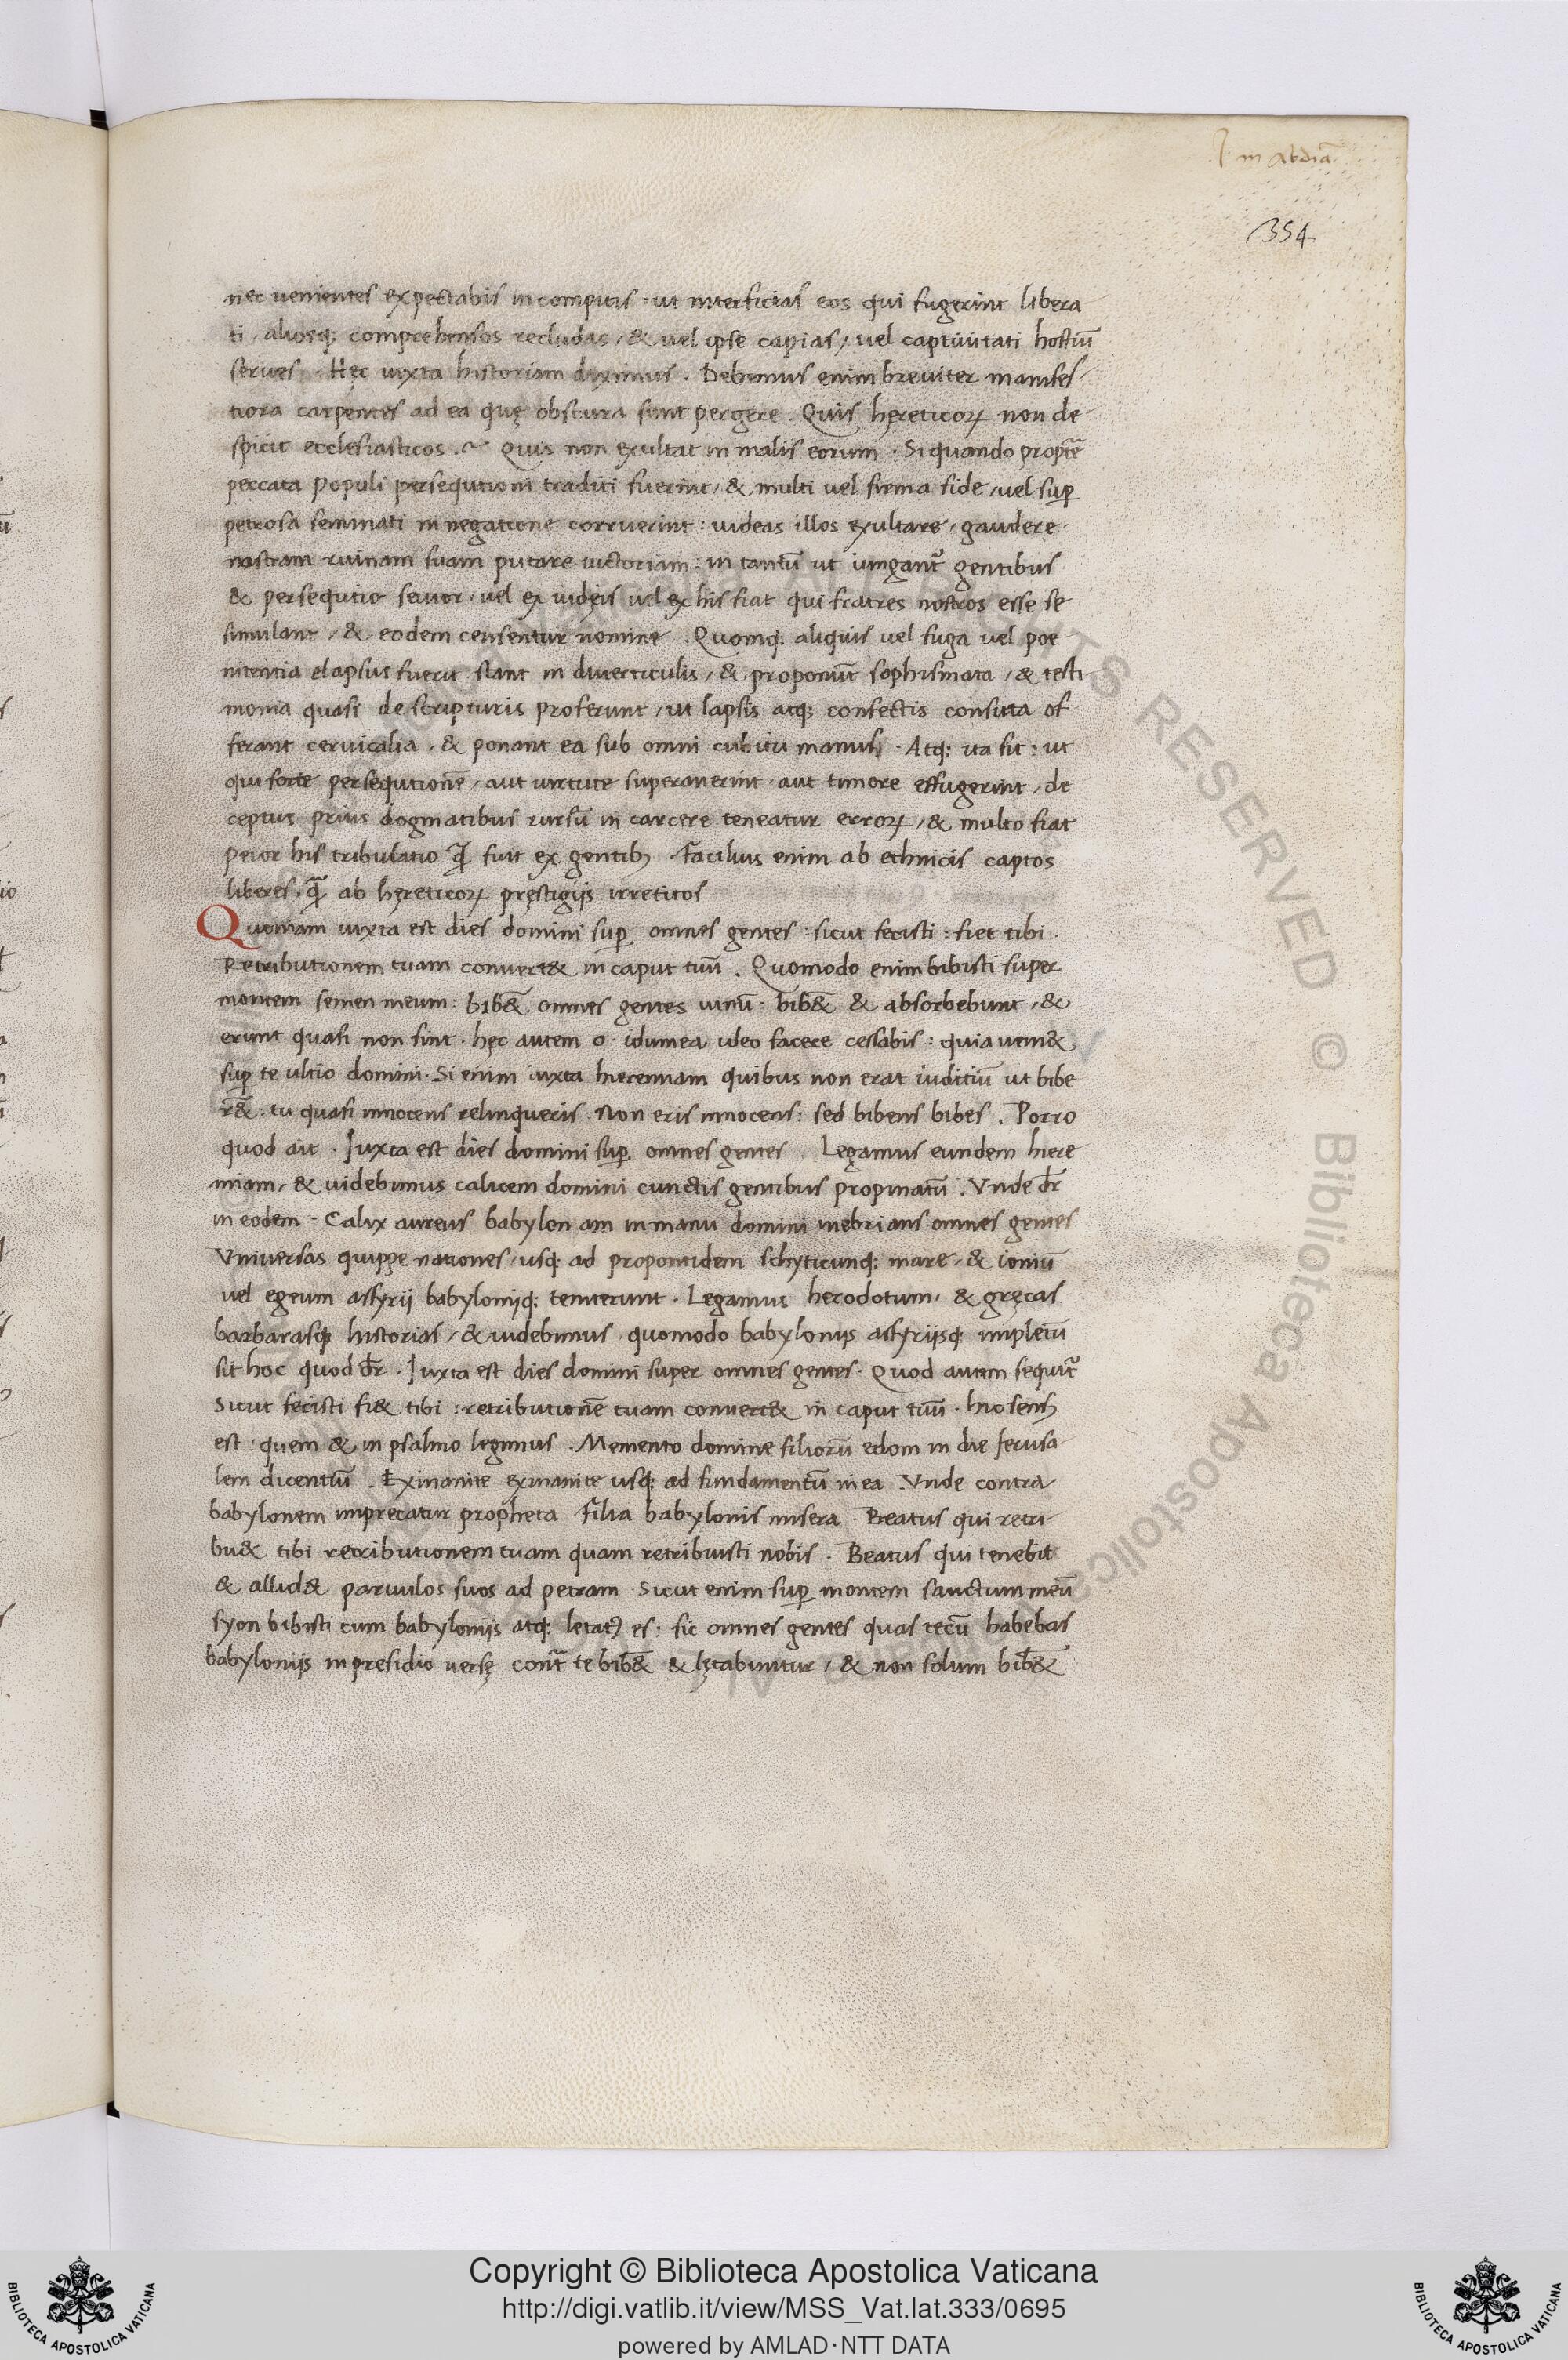 I. in Abdiā
354
nec uenientes expectabis in compitis: ut interficias eos qui fugerint libera
ti, aliosq; comprehensos recludas, & uel ipse capias, uel captiuitati hostiū
serues. Hęc iuxta historiam diximus. Debemus enim breuiter manifes
tiora carpentes ad ea quę obscura sunt pergere. Quis hęreticoꝝ non de
spicit ecclesiasticos. Quis non exultat in malis eorum. Si quando propt̄
peccata populi persequtioni traditi fuerint, & multi uel firma fide, uel suꝑ
petrosa seminati in negatione corruerint: uideas illos exultare, gaudere
nostram ruinam suam putare uictoriam: in tantū ut iungant᷑ gentibus
& persequtio seuior, uel ex iudęis uel ex his fiat qui fratres nostros esse se
simulant, & eodem censentur nomine. Quomq; aliquis uel fuga uel poe
nitentia elapsus fuerit stant in diuerticulis, & proponūt sophismata, & testi
monia quasi de scripturis proferunt, ut lapsis atq; confectis consuta of
ferant ceruicalia, & ponant ea sub omni cubitu manus. Atq; ita fit: ut
qui forte persequtionē, aut uirtute superauerint aut timore effugerint, de
ceptus prius dogmatibus rursū in carcere teneatur erroꝝ, & multo fiat
peior his tribulatio q̄ fuit ex gentibꝫ. Facilius enim ab ethnicis captos
liberes, q̄ ab hęreticoꝝ pręstigijs irretitos
Quoniam iuxta est dies domini suꝑ omnes gentes: sicut fecisti: fiet tibi.
Retributionem tuam conuert& in caput tuū. Quomodo enim bibisti super
montem semen meum: bib&̄ omnes gentes uinū: bib&̄ & absorbebunt, &
erunt quasi non sint. hęc autem o idumea ideo facere cessabis: quia ueni&
suꝑ te ultio domini. Si enim iuxta hieremiam quibus non erat iuditiū ut bibe
r&̄: tu quasi innocens relinqueris. Non eris innocens: sed bibens bibes. Porro
quod ait. Juxta est dies domini suꝑ omnes gentes. Legamus eundem hiere
miam, & uidebimus calicem domini cunctis gentibus propinatū. Vnde dr̄
in eodem. Calix aureus babylon am in manu domini inebrians omnes gentes
Vniuersas quippe nationes, usq; ad propontidem schyticunq; mare, & ioniū
uel egeum assyrij babylonijq; tenuerunt. Legamus herodotum, & gręcas
barbarasq; historias, & uidebimus quomodo babylonijs assyrijsq; impletū
sit hoc quod dr̄. Juxta est dies domini super omnes gentes. Quod autem sequit᷑
Sicut fecisti fi& tibi: retributionē tuam conuert& in caput tuū. hic sensꝫ
est: quem & in psalmo legimus. Memento domine filiorū edom in die ferusa
lem dicentiū. Exinanite exinanite usq; ad fundamentū in ea. Vnde contra
babylonem imprecatur propheta. Filia babylonis misera. Beatus qui retri
bu& tibi retributionem tuam quam retribuisti nobis. Beatus qui tenebit
& allid& paruulos suos ad petram. Sicut enim suꝑ montem sanctum meū
syon bibisti cum babylonijs atq; letatꝰ es: sic omnes gentes quas tecū habebas
babylonijs in presidio uersę cont̄ te bib&̄ & lętabuntur, & non solum bib&̄
ALL RIGHTS RESERVED © Biblioteca Apostolica
Copyright © Biblioteca Apostolica Vaticana
http://digi.vatlib.it/view/MSS_Vat.lat.333/0695
powered by AMLAD·NTT DATA
BIBLIOTECA APOSTOLICA VATICANA
BIBLIOTECA APOSTOLICA VATICANA